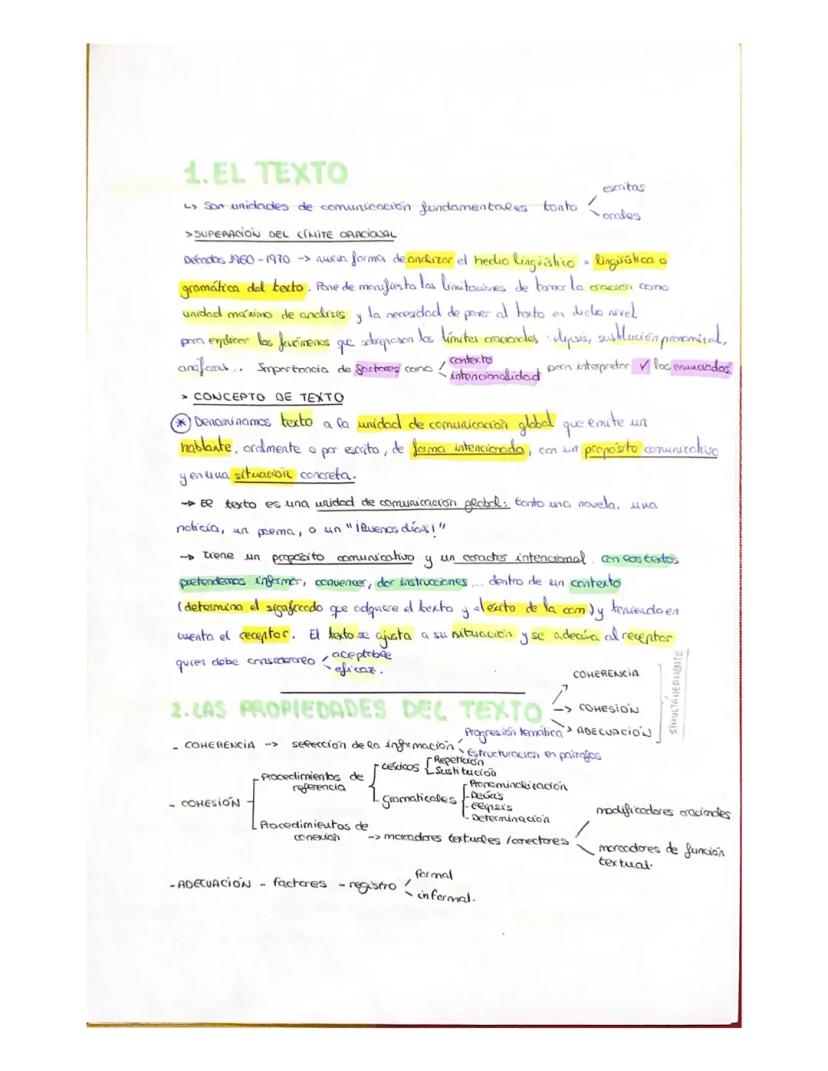 1. EL TEXTO
↳ Son unidades de comunicación fundamentales tanto escritas orales
> SUPERACIÓN DEL LÍMITE ORACIONAL
Décadas 1960-1970 -> nueva forma de analizar el hecho lingüístico = lingüística o
gramática del texto. Pone de manifiesto las limitaciones de tomar la oración como
unidad máxima de analisis y la necesidad de poner al texto en dicho nivel
para explicar los fenómenos que sobrepasan los límites oracionales: elipsis, sustitución pronominal,
anáforas.. Importancia de factores como contexto intencionalidad para interpretar los enunciados.
> CONCEPTO DE TEXTO
* Denominamos texto a la unidad de comunicación global que emite un
hablante, oralmente o por escrito, de forma intencionada, con un propósito comunicativo
y en una situación concreta.
-> El texto es una unidad de comunicación global: tanto una novela, una
noticia, un poema, o un "¡Buenos días!"
-> tiene un proposito comunicativo y un caracter intencional. Con los textos
pretendemos informar, convencer, dar instrucciones... dentro de un contexto
(determina el significado que adquiere el texto y el éxito de la com) y teniendo en
cuenta el receptor. El texto se ajusta a su situación y se adecúa al receptor
quien debe considerarlo aceptable
eficaz.
2. LAS PROPIEDADES DEL TEXTO
COHERENCIA
-> COHESIÓN
> ADECUACIÓN
SIMULTÁNEAMENTE
- COHERENCIA -> selección de la información
Progresión temática
Estructuración en párrafos
- COHESIÓN
Procedimientos de
referencia
léxicos
Repetición
Sustitución
gramaticales
Pronominalización
Deíxis
Elipsis
Determinación
Procedimientos de
conexión
-> marcadores textuales / conectores
modificadores oracionales
marcadores de función
textual.
- ADECUACIÓN - factores - registro
formal
informal.